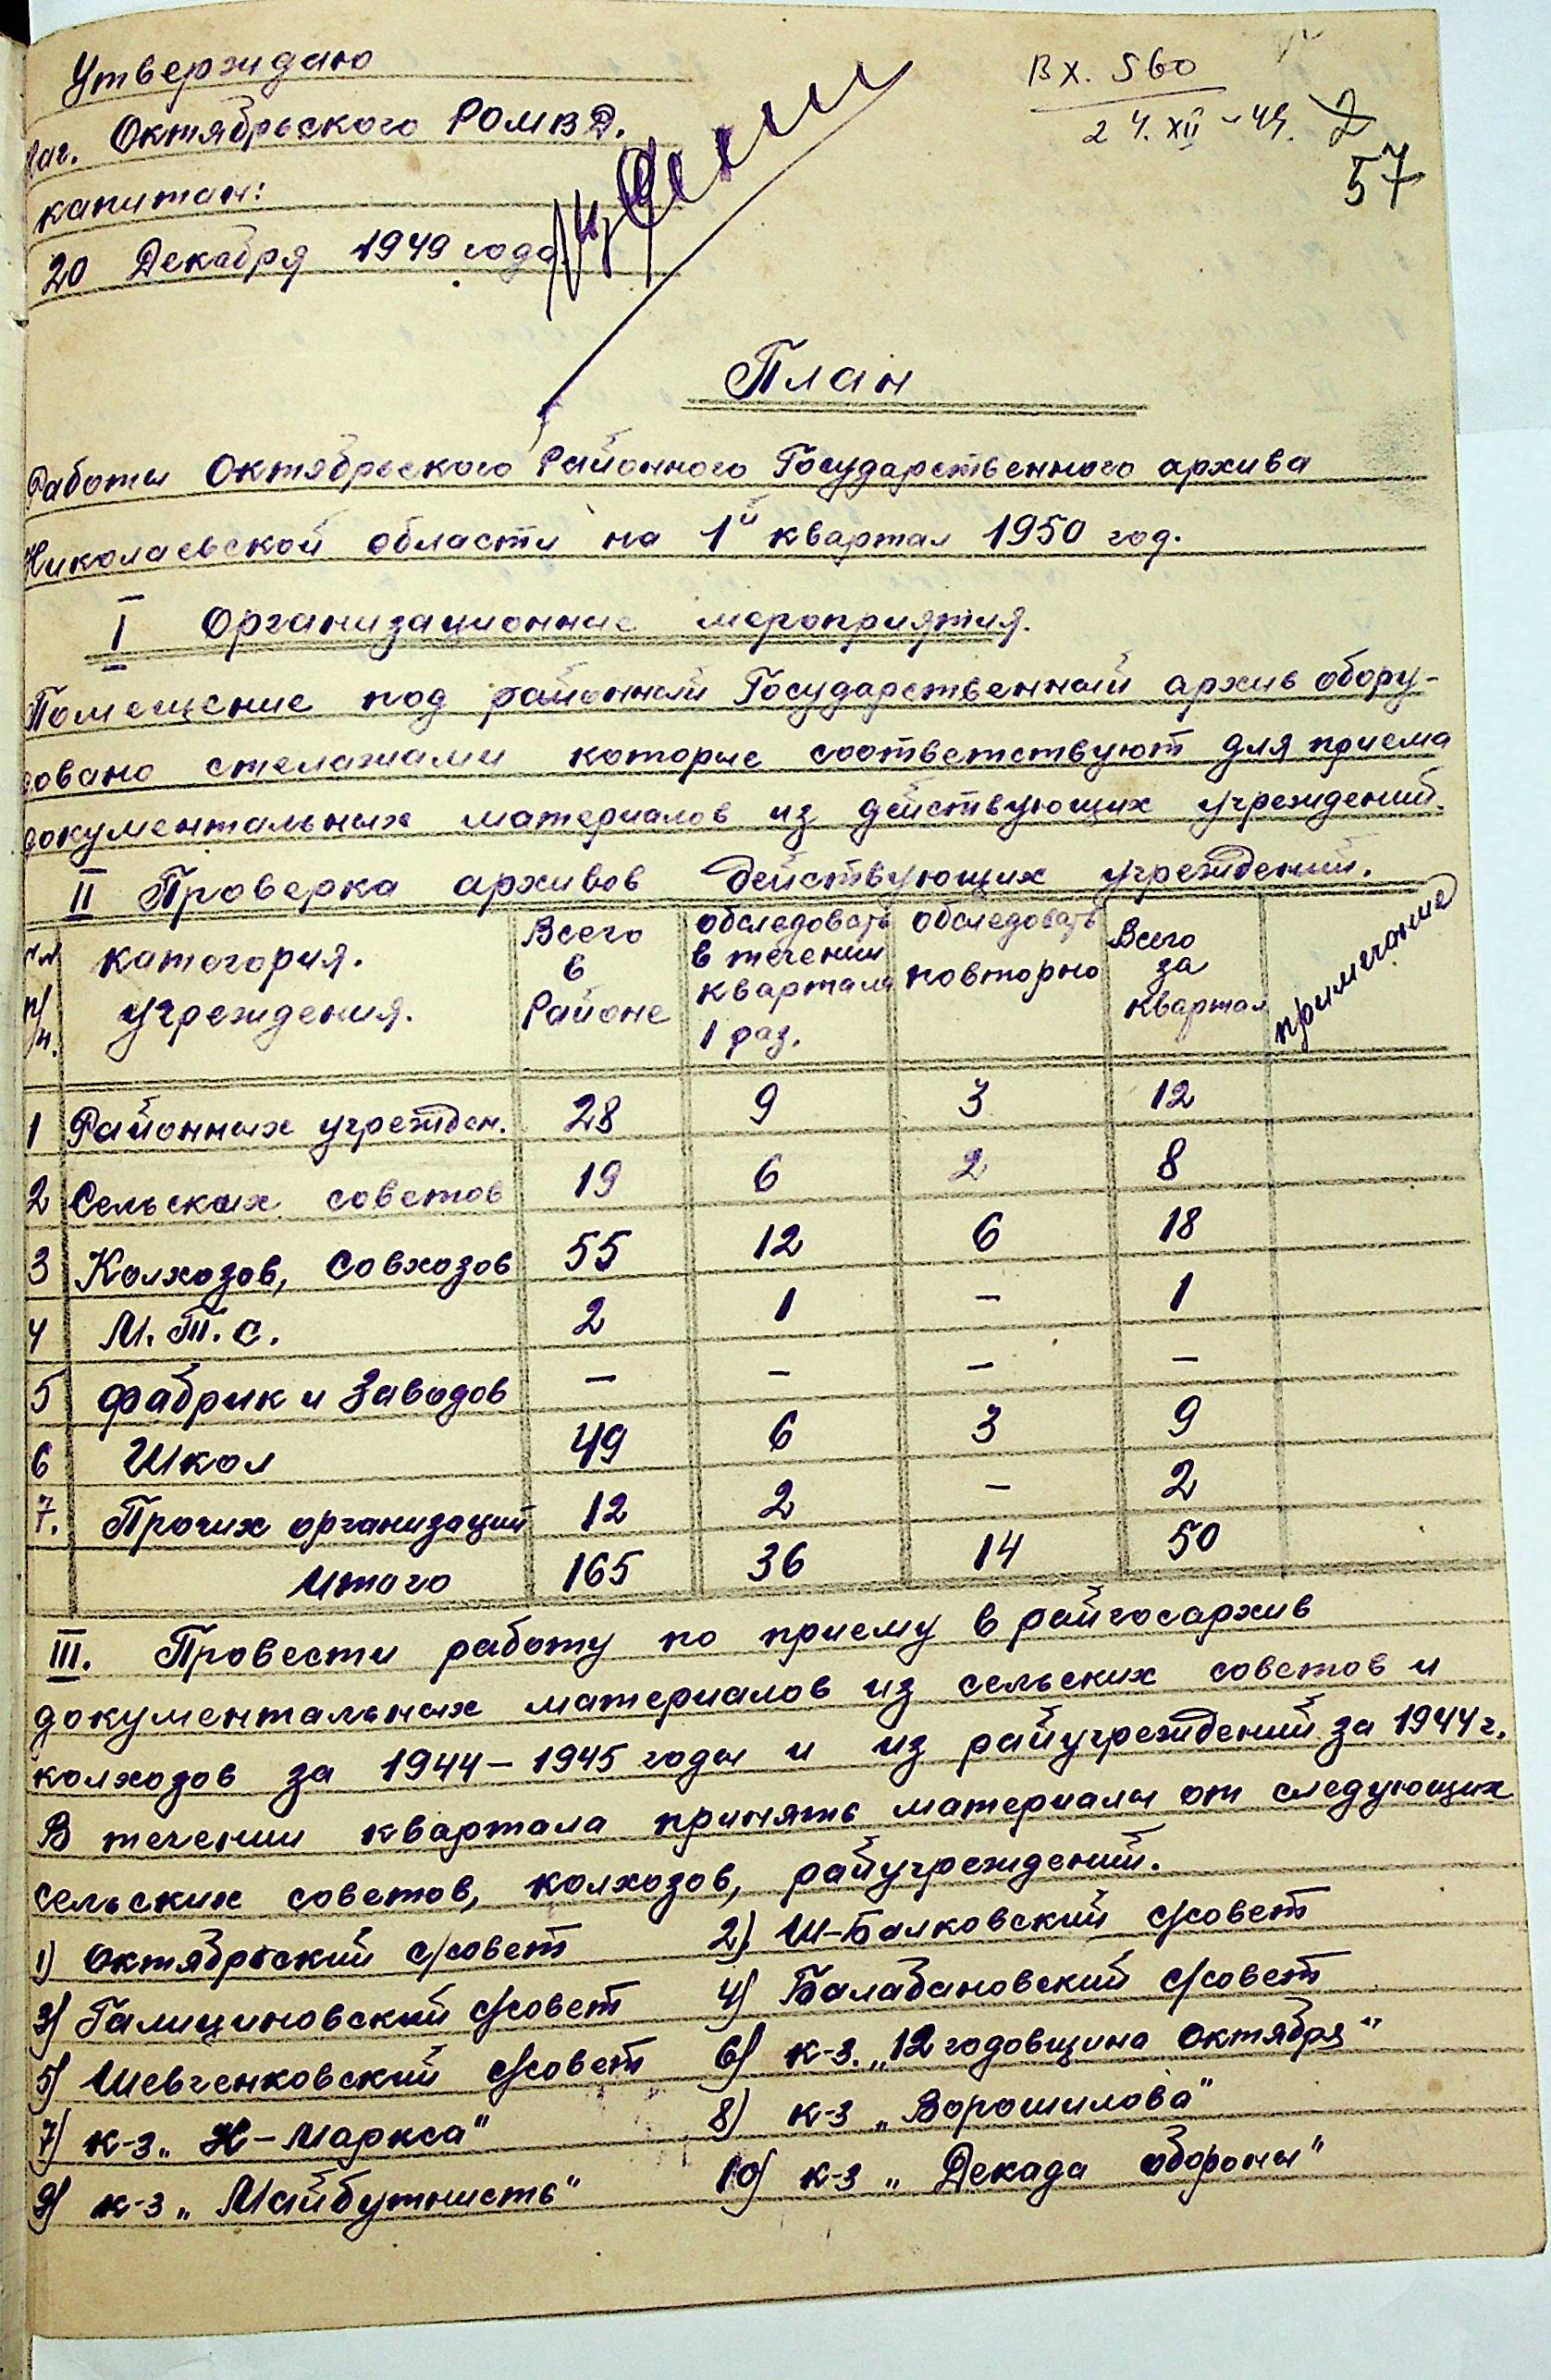 Утверждаю
Нач. Октябрьского РОМВД.
капитан:
20 Декабря 1949 года.
Вх. 560
24. XII - 49.
2
57
План
Работы Октябрьского Районного Государственного архива
Николаевской области на 1й квартал 1950 год.
I Организационные мероприятия.
Помещение под районный Государственный архив обору-
довано стелажами которые соответствуют для приема
документальных материалов из действующих учреждений.
II Проверка архивов действующих учреждений.
№№ п/п. | категория учреждения. | Всего в Районе | обследовать в течении квартала 1 раз. | обследовать повторно | Всего за квартал | примечание
1 Районных учрежден. 28 9 3 12
2 Сельских советов 19 6 2 8
3 Колхозов, Совхозов 55 12 6 18
4 М.Т.С. 2 1 – 1
5 фабрик и Заводов – – – –
6 Школ 49 6 3 9
7. Прочих организаций 12 2 – 2
Итого 165 36 14 50
III. Провести работу по приему в райгосархив
документальных материалов из сельских советов и
колхозов за 1944 – 1945 годы и из райучреждений за 1944 г.
В течении квартала принять материалы от следующих
сельских советов, колхозов, райучреждений.
1) Октябрьский с/совет 2) Ш-Балковский с/совет
3) Галициновский с/совет 4) Балабановский с/совет
5) Шевченковский с/совет 6) к-з. „12 годовщина Октября"
7) к-з „К-Маркса" 8) к-з „Ворошилова"
9) к-з „Майбутнисть" 10) к-з „Декада обороны"